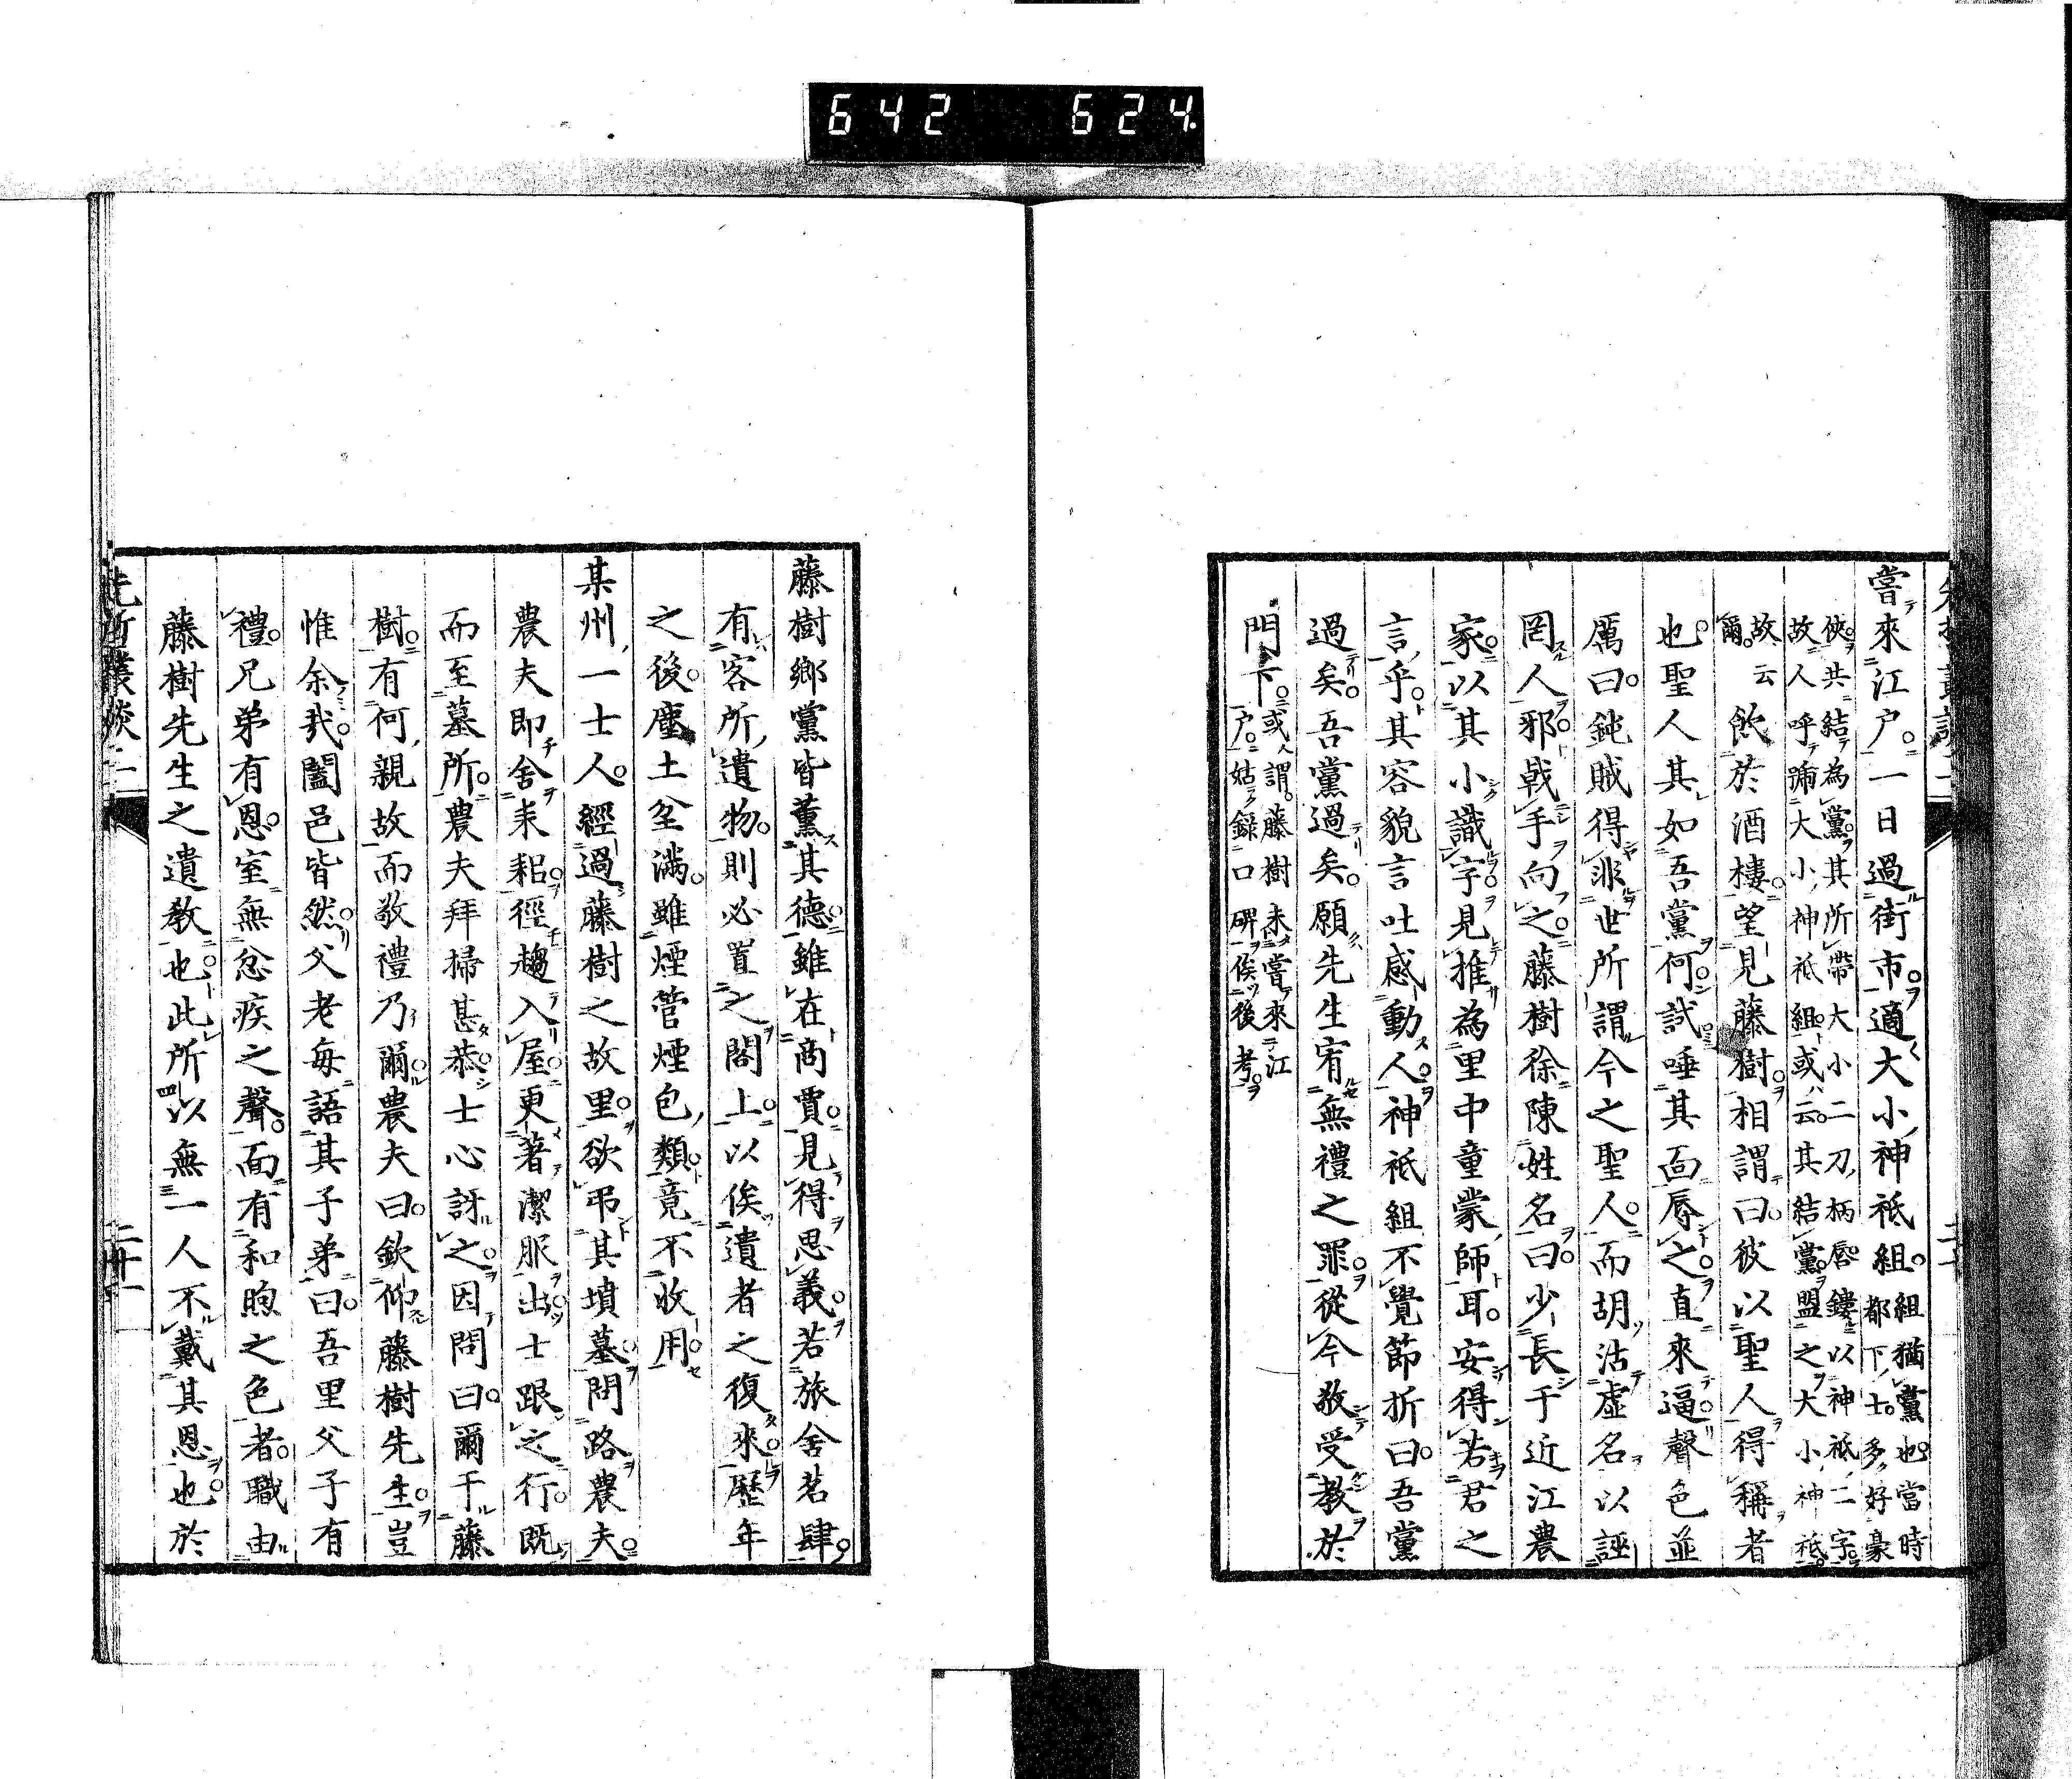 642 624
嘗來江戶一日過街市適大小神祇組組猶黨也當時都下士多好豪
俠共結爲黨其所帶大小二刀柄唇鏤以神祇二字故人呼號大小神祇組或云其結黨盟之大小神祇
故云爾飮於酒樓望見藤樹相謂曰彼以聖人得稱者
也聖人其如吾黨何試唾其面辱之直來逼聲色並
厲曰鈍賊得非世所謂今之聖人而胡沽虛名以誣
罔人邪戟手向之藤樹徐陳姓名曰少長于近江農
家以其小識字見推爲里中童蒙師耳安得若君之
言乎其容貌言吐感動人神祇組不覺節折曰吾黨
過矣吾黨過矣願先生宥無禮之罪從今敬受敎於
門下或謂藤樹未嘗來江戶姑錄口碑俟後考
藤樹鄕黨皆薰其德雖在商賈見得思義若旅舍茗肆
有客所遺物則必置之閣上以俟遺者之復來歷年
之後塵土坌滿雖煙管煙包類竟不收用
某州一士人經過藤樹之故里欲弔其墳墓問路農夫
農夫卽舍耒耜徑趨入屋更著潔服出士跟之行既
而至墓所農夫拜掃甚恭士心訝之因問曰爾于藤
樹有何親故而敬禮乃爾農夫曰欽仰藤樹先生豈
惟余哉闔邑皆然父老每語其子弟曰吾里父子有
禮兄弟有恩室無忿疾之聲面有和煦之色者職由
藤樹先生之遺敎也此所以無一人不戴其恩也於
先哲叢談 二